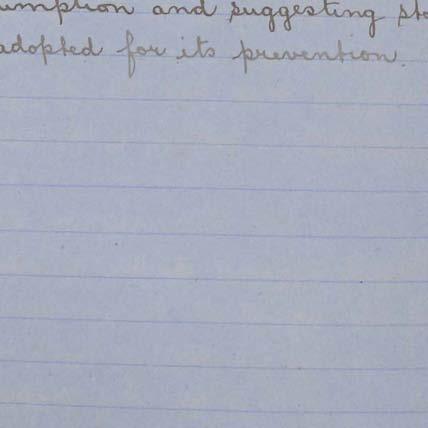 umption and suggesting ste
adopted for its prevention.